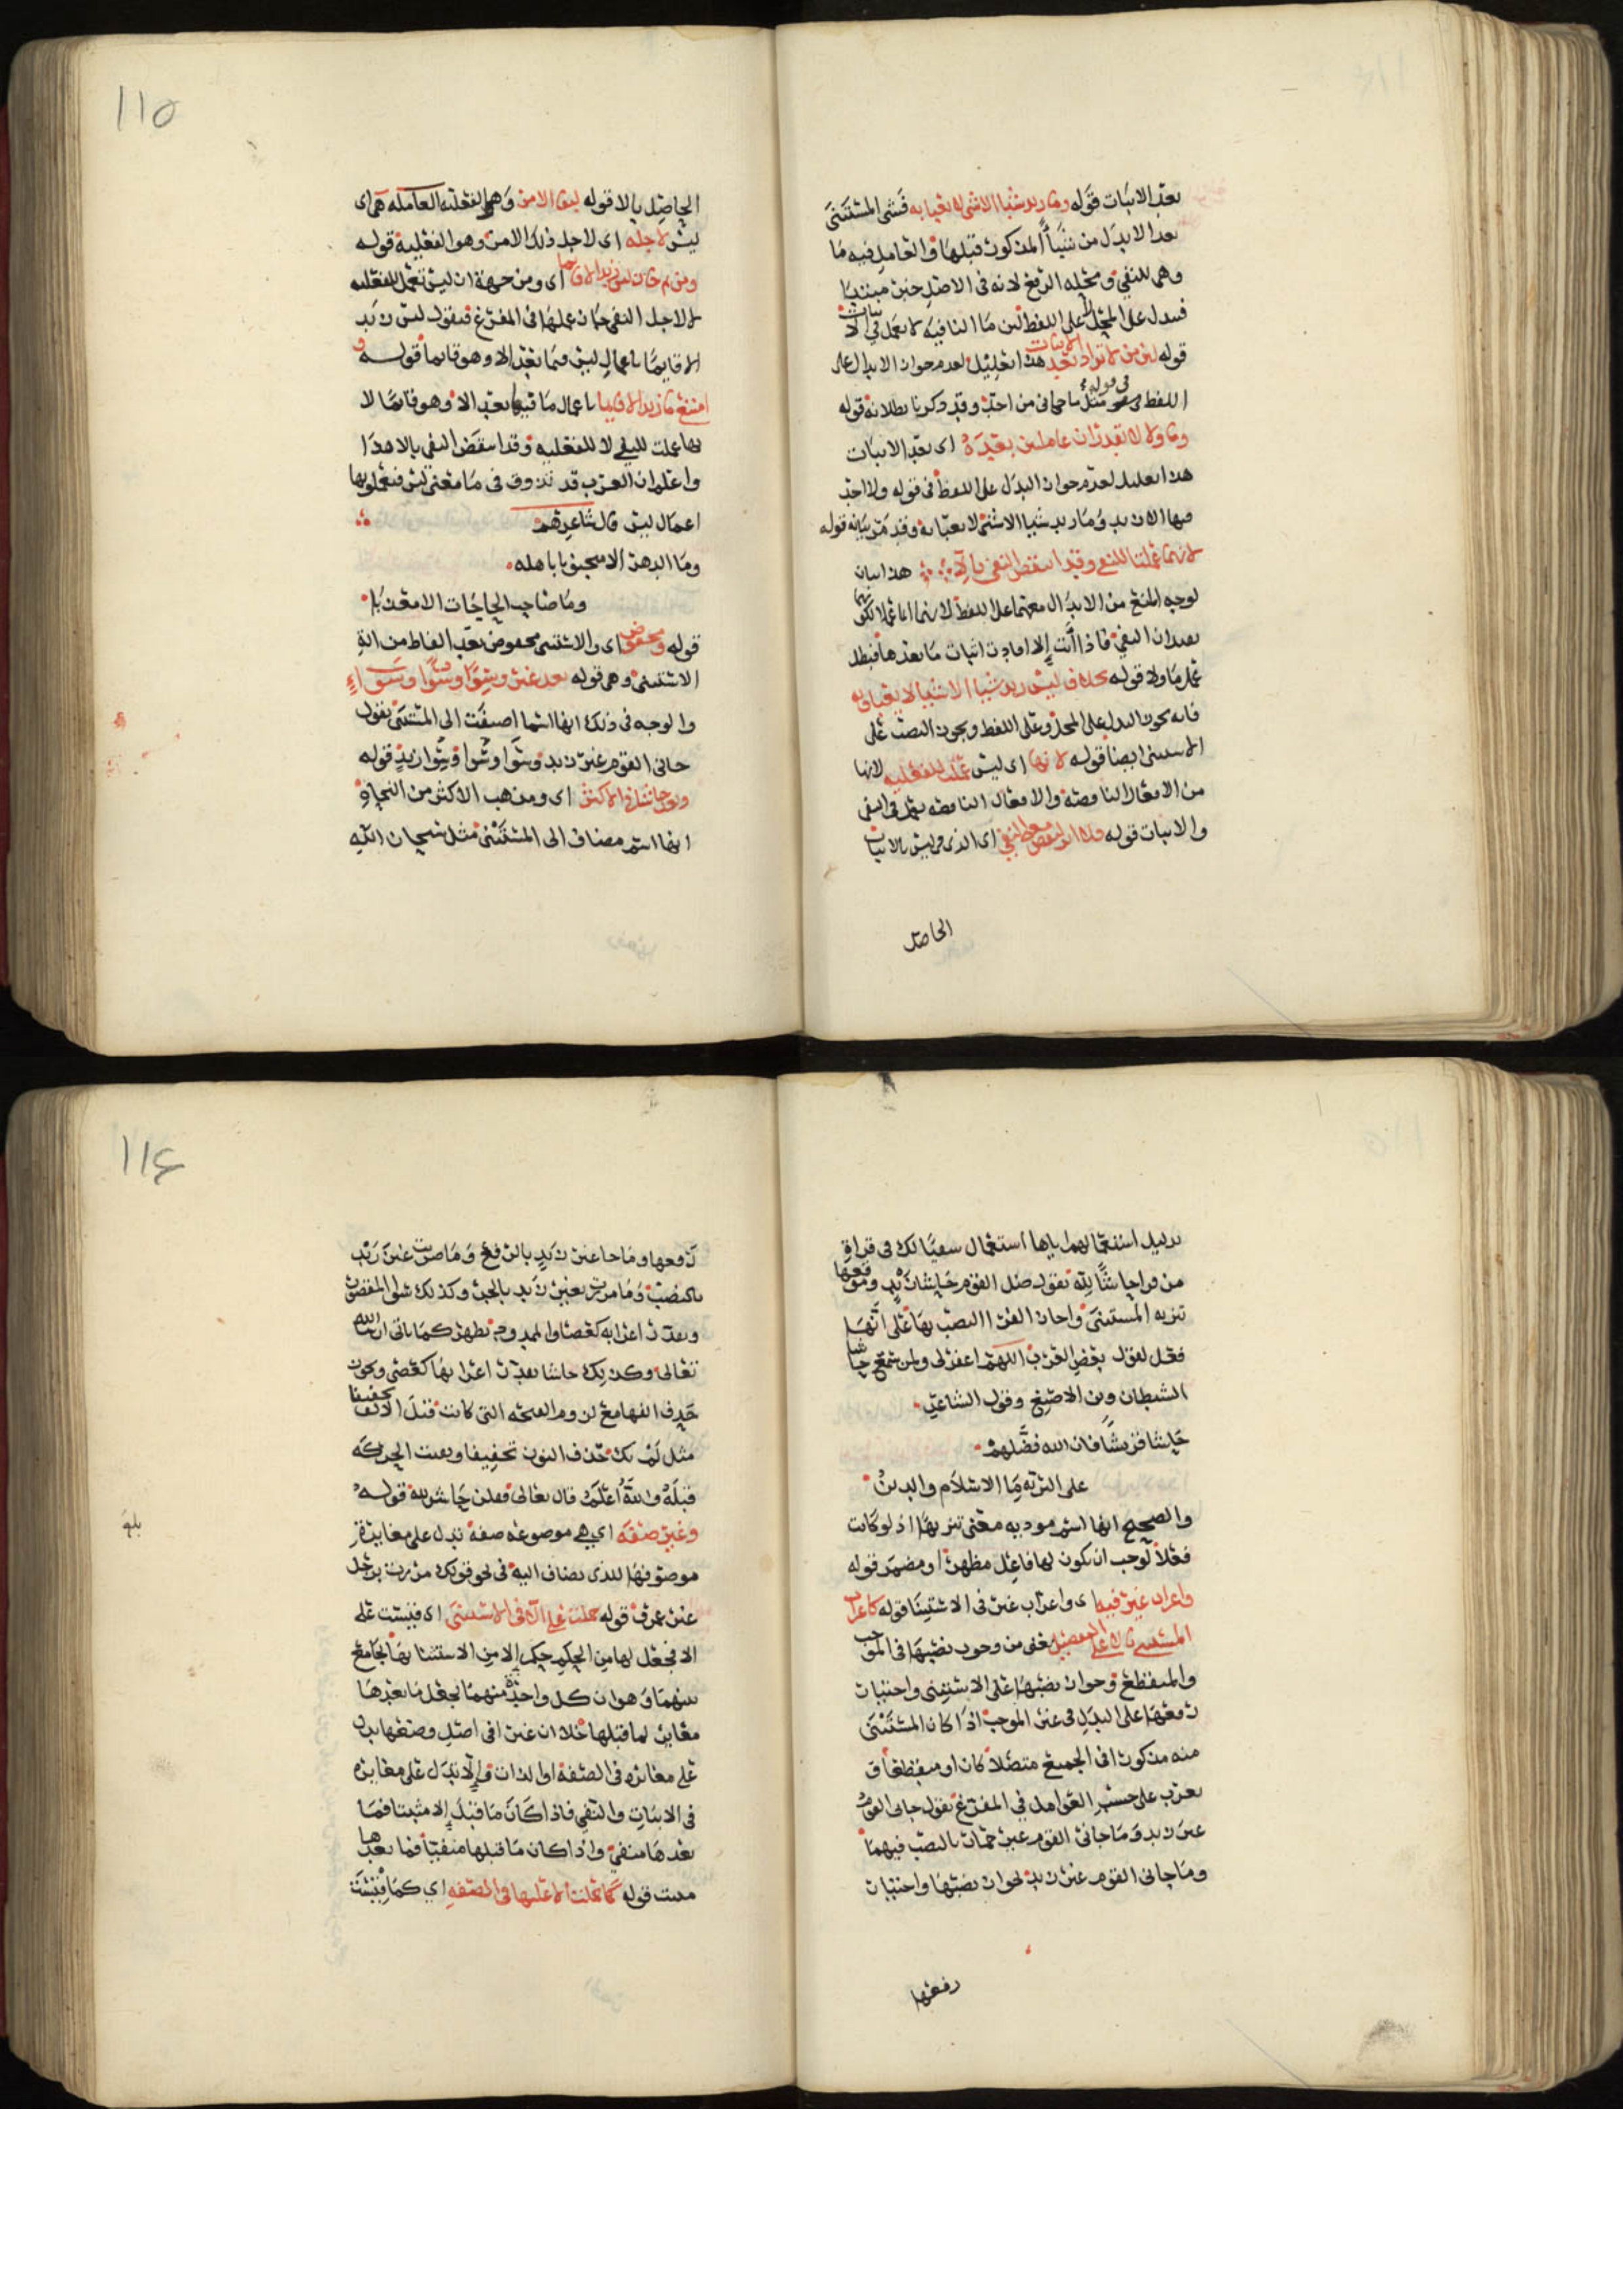 بعد الاثبات قوله وما زيد شيئا الا شي لا يعبا به فشي المستثنى
بعد الا بدل من شيئاً المذكور قبلها والعامل فيه ما
وهي للنفي ومحله الرفع لانه في الاصل خبر مبتدا
فيبدل على المحل لا على اللفظ لان ما النافيه لا تعمل في الاثبات
قوله لان من لا تزاد بعد الاثبات هذا تعليل لعدم جواز الابدال على
اللفظ في قوله مثل ما جاني من احد وقد ذكرنا بطلانه قوله
وما ولا لا تقدران عاملتين بعده اي بعد الاثبات
هذا تعليل لعدم جواز البدل على اللفظ في قوله ولا احد
فيها الا زيد وما زيد شيئا الا شي لا يعبا به وقد مر بيانه قوله
لانهما عملتا للنفي وقد انتقض النفي بالا هذا بيان
لوجه المنع من الابدال معهما على اللفظ لانهما انما عملا لكونهما
يفيدان النفي فاذا أتت إلا افادت اثبات ما بعدها فبطل
عمل ما ولا قوله بخلاف ليس زيد شيئا الا شيئا لا يعبا به
فانه يجوز البدل على المحل وعلى اللفظ ويجوز النصب على
الاستثنى ايضا قوله لانها اي ليس عملت للفعليه لانها
من الافعال الناقصة والافعال الناقصه تعمل في النفي
والاثبات قوله فلا اثر لنقض معنى النفي اي الذي في ليس بالاثبات
الحاصل
١١٥
الحاصل بالا قوله لبقا الامر وهي الفعليه العامله هي اي
ليس لاجله اي لاجل ذلك الامر وهو الفعلية قوله
ومن ثم جاز ليس زيد الا قايما اي ومن جهة ان ليس تعمل للفعليه
لا لاجل النفي جاز عملها في المفرغ فتقول ليس زيد
الا قايمًا باعمال ليس فيما بعد الا وهو قايما قوله و
امتنع ما زيد الا قايما باعمال ما فيما بعد الا وهو قايمًا لا
نها عملت للنفي لا للفعليه وقد انتقض النفي بالا هذا
واعلم ان العرب قد تذوق في ما معنى ليس فيعملونها
اعمال ليس قال شاعرهم
وما الدهر الا منجنونا باهله
وما صاحب الحاجات الا معذبا
قوله ومخفوض اي والاستثنى مخفوض بعد الفاظ من الة
الاستثنى وهي قوله بعد غير وسِوًا وسُوًا وسَوَاءٍ
والوجه في ذلك انها اسما اضيفت الى المستثنى تقول
جاني القوم غير زيد وسَوا وسُوا وسِوا زيدٍ قوله
وبعد حاشا في الاكثر اي ومذهب الاكثر من النحاة
انها اسم مضاف الى المستثنى مثل سبحان الله
بدليل استعمالهم اياها استعمال سقيًا لك في قراة
من قرا حاشًا لله تقول ضل القوم حاشا زيدٍ وموقعها
تنزيه المستثنى واجاز الفرا النصب بها على انها
فعل لقول بعض العرب اللهم اغفر لي ولمن سمع حاشا
الشيطان وبن الاصبغ وقول الشاعر
حاشا قريشًا فان الله فضّلهم
على البرية بالاسلام والدين
والصحيح انها اسم مود به معنى تنزيها اذ لو كانت
فعلاً لوجب ان يكون لها فاعل مظهر او مضمر قوله
واعراب غير فيه اي واعراب غير في الاستثنا قوله كاعراب
المستثنى بالا على التفصيل يعني من وجوب نصبها في الموجب
والمنقطع وجواز نصبها على الاستثنى واختيار
رفعها على البدل في غير الموجب اذا كان المستثنى
منه مذكورا في الجميع متصلاً كان او منقطعاً و
يعرب على حسب العوامل في المفرغ تقول جاني القوم
غير زيد وما جاني القوم غير حمار بالنصب فيهما
وما جاني القوم غير زيد بجواز نصبها واختيار
رفعها
١١٦
رفعها وما جا غير زيدٍ بالرفع وما ضربت غير زيد
بالنصب وما مررت بغير زيد بالجر وكذلك سوى المقصور
ويقدر اعرابه كعصا والممدود يظهر كما ياتي ان شا الله
تعالى وكذلك حاشا يقدر اعرابها كعصى ويجوز
حذف الفها مع لزوم الفتحه التي كانت قبل الالف تخفيفا
مثل لَمْ يك حذف النون تخفيفا وبقيت الحركه
قبله والله أعلم قال تعالى وقلن حاش لله قوله
وغير صفه اي هي موضوعه صفه تدل على مغايرة
موصوفها للذي يضاف اليه في نحو قولك مررت برجل
غير عمرو قوله حملت على الا في الاستثنى اي قيست على
الا فجعل لها من الحكم حكم إلا من الاستثنا بها بجامع
بينهما وهو ان كل واحدة منهما تجعل ما بعدها
مغاير لما قبلها خلا ان غير في اصل وضعها يدل
على مغايره في الصفه او الذات وإلا تدل على مغايره
في الاثبات والنفي فاذا كان ما قبل إلا مثبتا فما
بعدها منفي واذا كان ما قبلها منفيّا فما بعدها
مثبت قوله كما حملت الا عليها في الصفه اي كما قيست
بلغ